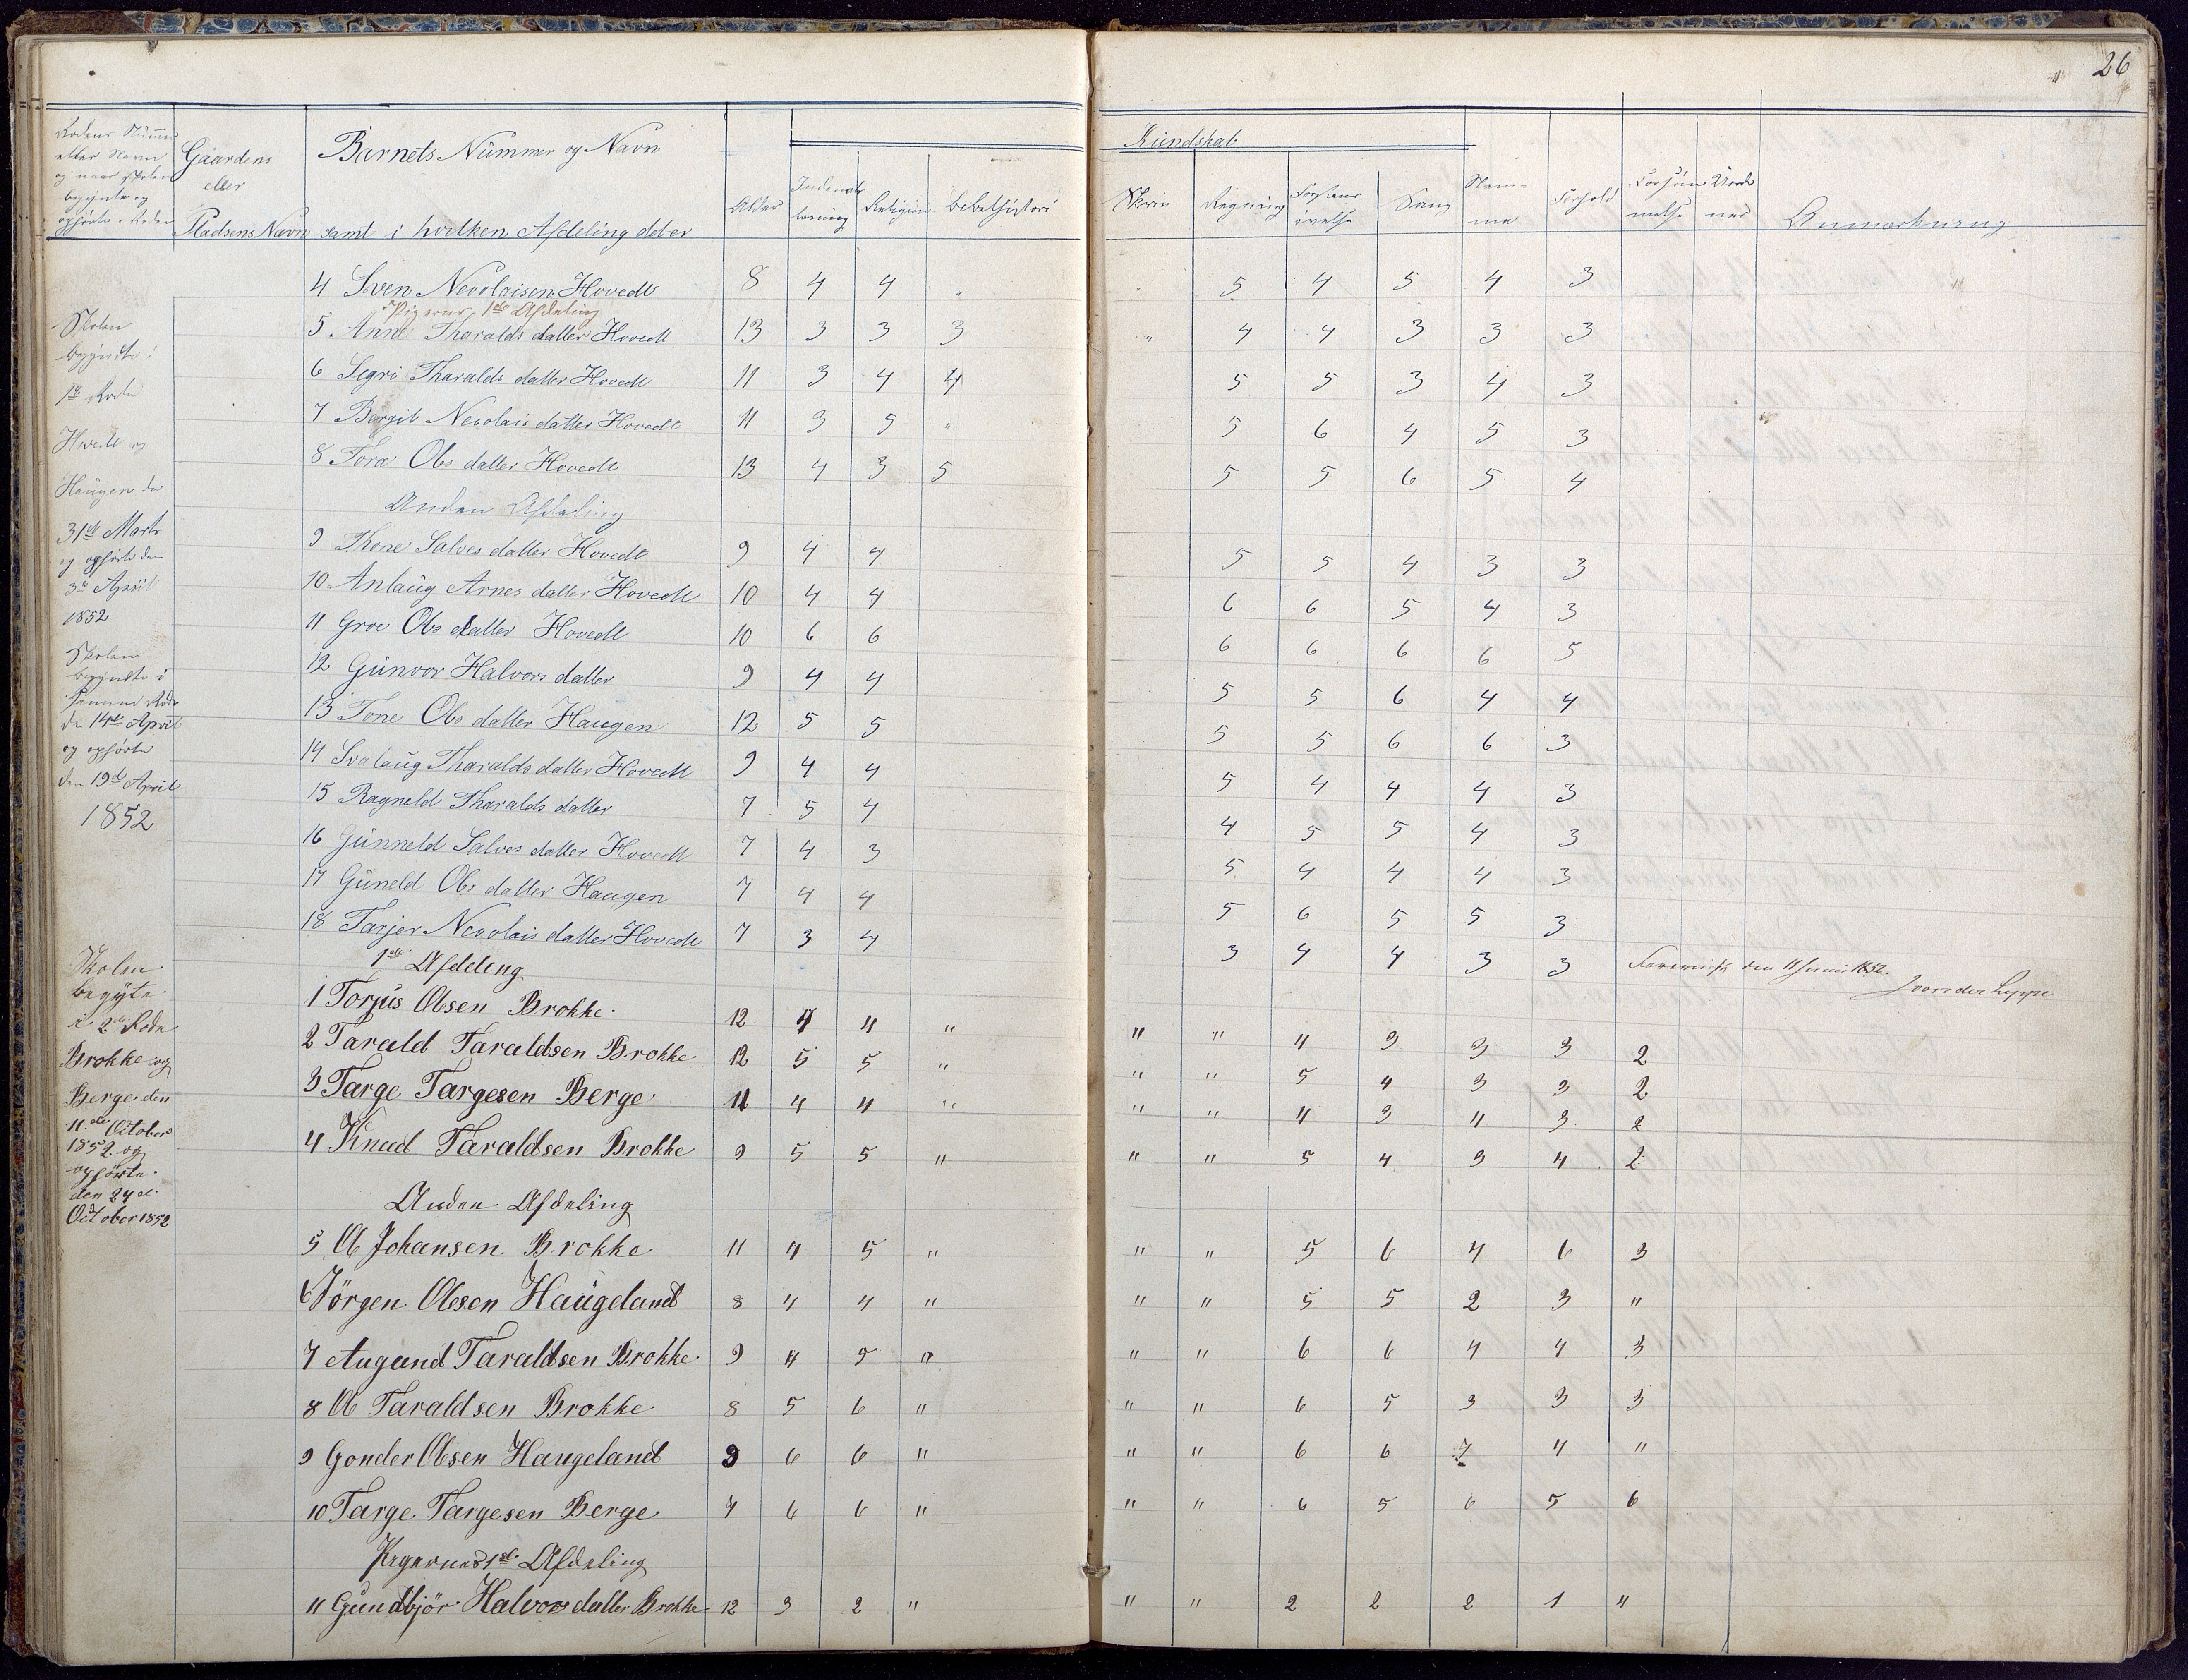 26
Rodens Nummer
eller Navn
og naar skolen
begyndte og
ophörte i Roden
Gaardens
eller
Pladsens Navn
Barnets Nummer og Navn
samt i hvilken Afdeling det er
Alder
Indenads
læsning
Religion
Bibelhistori
Kundskab
Skrive
Regning
Forstans
övelse
Sang
Nem-
me
Forhold
Forsöm
melse
Anmærkning
4 Sven Nevolaisen Hovedt 8 4 4 " " 5 4 5 4 3
Pigerne 1ste Afdeling
5 Anne Tharalds datter Hovedt 13 3 3 3 " 4 4 3 3 3
6 Segri Tharalds datter Hovedt 11 3 4 4 5 5 3 4 3
7 Bergit Nevolais datter Hovedt 11 3 5 " 5 6 4 5 3
8 Tora Ols datter Hovedt 13 4 3 5 5 5 6 5 4
Anden Afdeling
9 Thone Salves datter Hovedt 9 4 4 5 5 4 3 3
10 Anlaug Arnes datter Hovedt 10 4 4 6 6 5 4 3
11 Groe Ols datter Hovedt 10 6 6 6 6 6 6 5
12 Gunvor Halvors datter 9 4 4 5 5 6 4 4
13 Tone Ols datter Haugen 12 5 5 5 5 6 6 3
14 Svalaug Tharalds datter Hovedt 9 4 4 5 4 4 4 3
15 Ragneld Tharalds datter 7 5 4 4 5 5 4 3
16 Gunneld Salves datter Hovedt 7 4 3 5 4 4 4 3
17 Guneld Ols datter Haugen 7 4 4 5 6 5 5 3
18 Tarjer Nevolais datter Hovedt 7 3 4 3 4 4 3 3 Forevist den 11 Juni 1852.
J von der Lippe
Skolen
begyndte i
1ste Rode
Hovedt og
Haugen den
31te Marts
og ophörte den
3die April
1852
Skolen
begyndte i
samme Rode
den 14de April
og ophörte
den 19de April
1852
1ste Afdeleng
1 Torjus Olsen Brokke. 12 4 4 " " " 4 3 3 3 2
2 Tarald Taraldsen Brokke 12 5 5 " " " 5 4 3 3 2
3 Targe Targesen Berge 11 4 4 " " " 4 3 4 3 2
4 Knud Taraldsen Brokke 9 5 5 " " " 5 4 3 4 2
Anden Afdeling
5 Ol Johansen Brokke 11 4 5 " " " 5 6 4 6 3
6 Jörgen Olesen Haugeland 8 4 4 " " " 5 5 2 3 "
7 Augund Taraldsen Brokke 9 4 5 " " " 6 6 4 4 3
8 Ol Taraldsen Brokke 8 5 6 " " " 6 5 3 3 3
9 Gonder Olsen Haugeland 9 6 6 " " " 6 6 7 4 "
10 Targe Targesen Berge 7 6 6 " " " 6 5 6 5 6
Pegernes 1ste Afdeling
11 Gundbjör Halvors datter Brokke 12 3 2 " " " 2 2 2 1 "
Skolen
begyte
i 2den Rode
Brokke og
Berge den
11te October
1852 og
ophörte
den 24de
October 1852